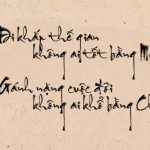 Đi khắp thế gian
không ai tốt bằng M
Gánh nặng cuộc đời
không ai khổ bằng Ch